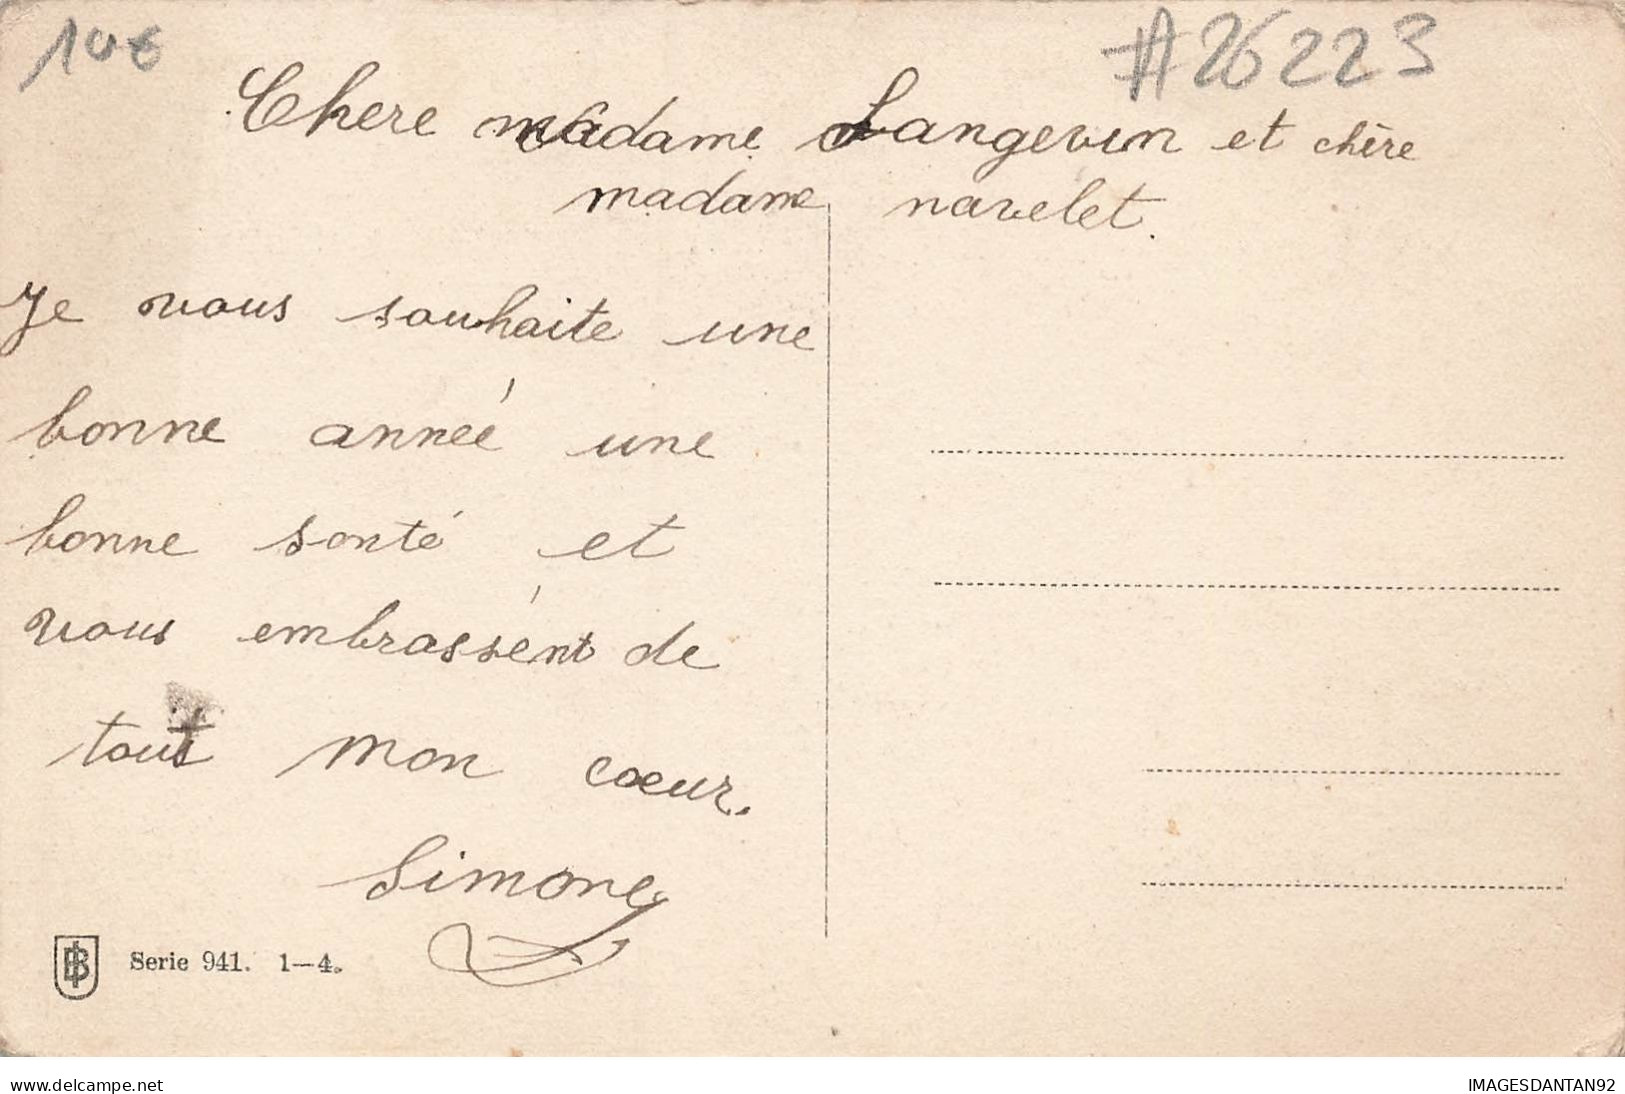 10€
#26223
Chere madame Langevin et chère
madame navelet.
Je vous souhaite une
bonne année une
bonne santé et
vous embrassent de
tout mon coeur.
Simone
Serie 941. 1-4.
www.delcampe.net
IMAGESDANTAN92